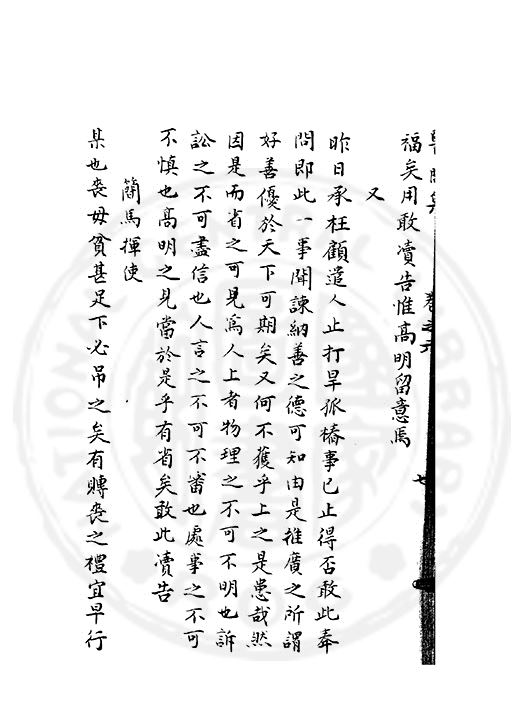 卷之六
七
福矣用敢瀆告惟高明留意焉
又
昨日承枉顧遣人止打旱孤樁事已止得否敢此奉
問即此一事聞諫納善之德可知由是推廣之所謂
好善優於天下可期矣又何不獲乎上之是患哉然
因是而省之可見為人上者物理之不可不明也訴
訟之不可盡信也人言之不可不審也處事之不可
不慎也高明之見當於是乎有省矣敢此瀆告
簡馬揮使
某也喪母貧甚足下必吊之矣有賻喪之禮宜早行